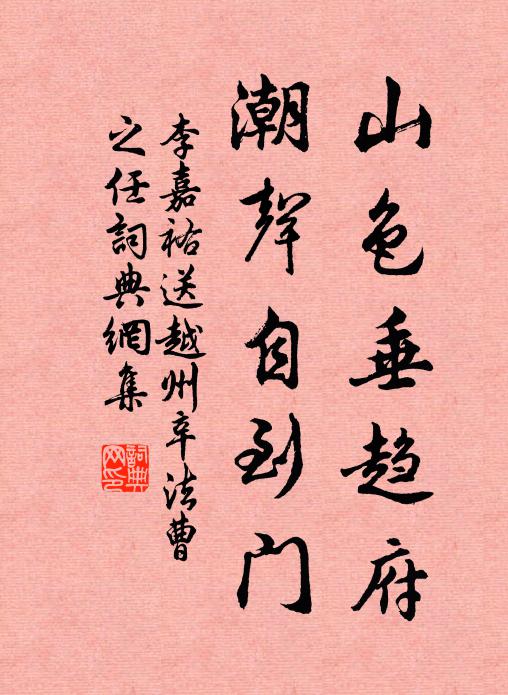 山色垂趋府
潮聲自到门
李嘉祐送越州辛法曹
之任詞典網集
詞典
网印